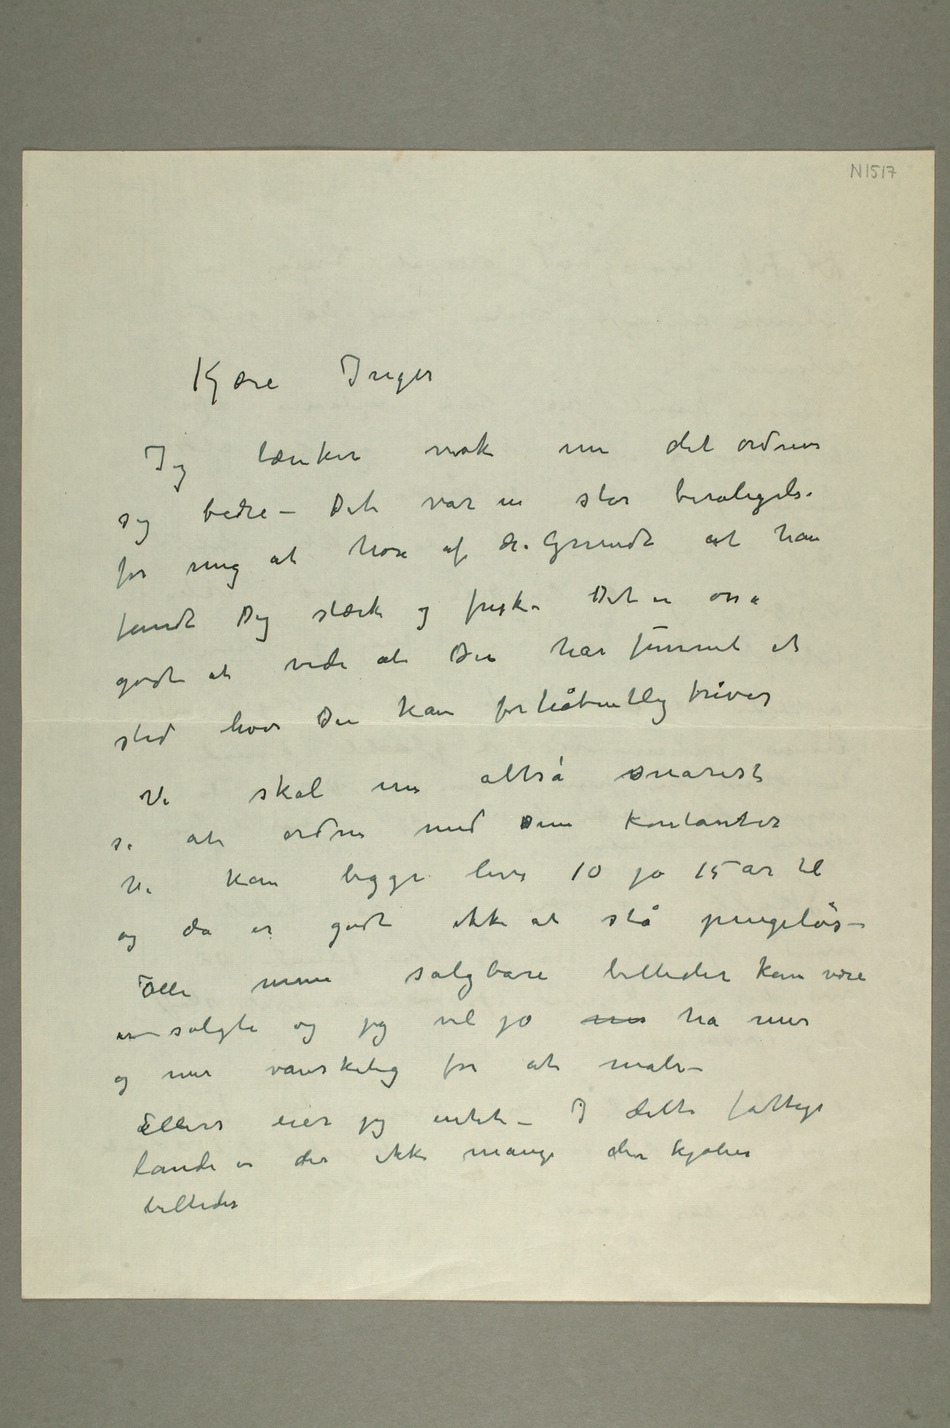 N1517
Kjære Inger
Jeg tænker nok nu det ordner
sig bedre – Det var en stor beroligelse
for mig at høre af dr. Grundt at han
fandt Dig stærk og frisk. Det er osså
godt at vide at Du har funnet et
sted hvor Du kan forhåbentlig trives
Vi skal nu altså snarest
se at ordne med Dine kontanter
Vi kan begge leve 10 ja 15 år til
og da er godt ikke at stå pengeløs –
Alle mine salgbare billeder kan være
er solgte og jeg vil jo nu ha mer
og mer vanskelig for at male –
Ellers eier jeg intet – I dette fattige
lande er der ikke mange der kjøber
billeder